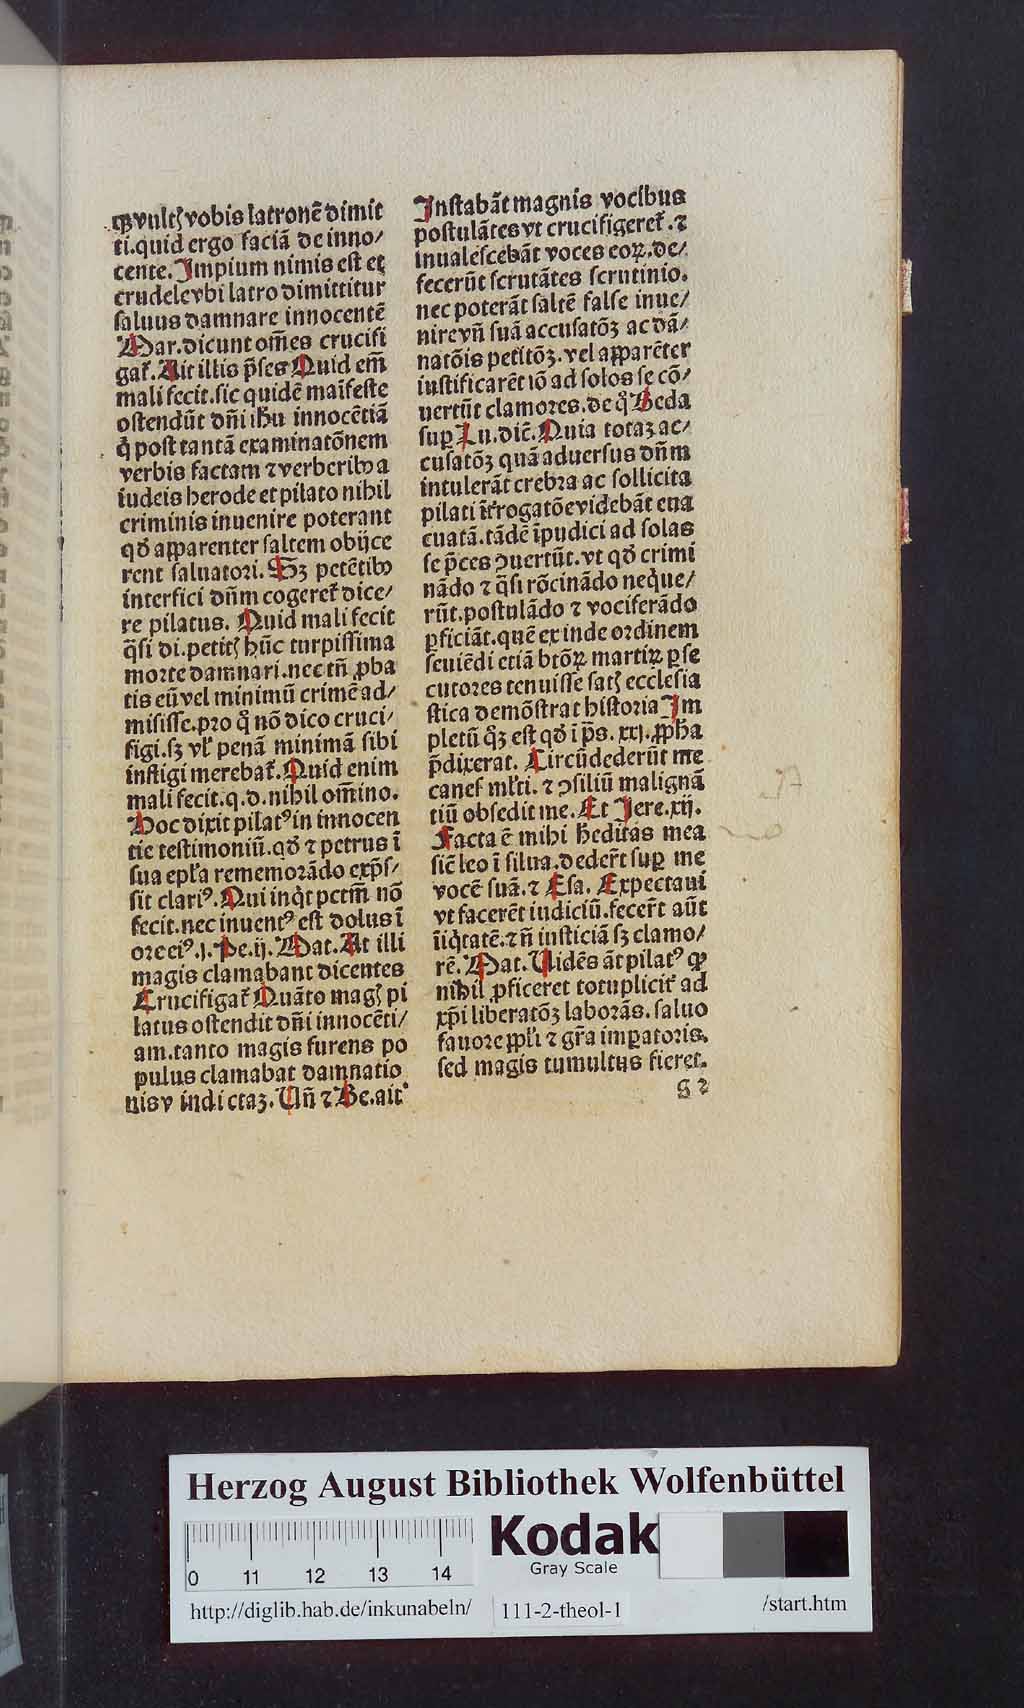 ꝙ vultꝭ vobis latronē dimit
ti.quid ergo faciā de inno/
cente. Impium nimis est et
crudele vbi latro dimittitur
saluus damnare innocentē
Mar. dicunt om̄es crucifi
gat᷑. Ait illis p̄ses Quid em̄
mali fecit. sic quidē maīfeste
ostendūt dn̄i ihu innocētiā
ꝙ post tantā examinatōnem
verbis factam ⁊ verberibꝰ a
iudeis herode et pilato nihil
criminis inuenire poterant
qđ apparenter saltem obijce
rent saluatori. Sꝫ petētibꝰ
interfici dn̄m cogeret᷑ dice/
re pilatus. Quid mali fecit
q̄si di. petitꝭ hūc turpissima
morte damnari. nec tn̄ ꝓba
tis eū vel minimū crimē ad/
misisse. pro qͦ nō dico cruci/
figi. sꝫ vł penā minimā sibi
instigi merebat᷑. Quid enim
mali fecit. q. d. nihil om̄ino.
Hoc dixit pilatꝰ in innocen
tie testimoniū. qđ ⁊ petrus ī
sua epła rememorādo exp̄s/
sit clariꝰ. Qui inqͥt pctm̄ nō
fecit. nec inuentꝰ est dolus ī
ore eiꝰ. j. Pe. ij. Mat. At illi
magis clamabant dicentes
Crucifigat᷑ Quāto magꝭ pi
latus ostendit dn̄i innocēti/
am. tanto magis furens po
pulus clamabat damnatio
nis v indictaꝫ. Vn̄ ⁊ Be. ait
Instabāt magnis vocibus
postulātes vt crucifigeret᷑. ⁊
inualescebāt voces eoꝝ. de/
fecerūt scrutātes scrutinio.
nec poterāt saltē false inue/
nire vn̄ suā accusatōꝫ ac dā/
natōis petitōꝫ. vel apparēter
iustificarēt iō ad solos se cō/
uertūt clamores. de qͦ Beda
suꝑ Lu. dic̄. Quia totaꝫ ac/
cusatōꝫ quā aduersus dn̄m
intulerāt crebra ac sollicita
pilati īt᷑rogatōe videbāt eua
cuatā. tādē īpudici ad solas
se p̄ces ꝯuertūt. vt qđ crimi
nādo ⁊ q̄si rōcinādo neqͥue/
rūt. postulādo ⁊ vociferādo
ꝑficiāt. quē ex inde ordinem
seuiēdi etiā btōꝝ martiꝝ ꝑse
cutores tenuisse satꝭ ecclesia
stica demōstrat historia Im
pletū qͦꝫ est qđ ī ps. xxj. ꝓpħa
p̄dixerat. Circūdederūt me
canes młti. ⁊ ꝯsiliū malignā
tiū obsedit me. Et Jere. xij.
Facta ē mihi ħeditas mea
sic̄ leo ī silua. dedert̄ suꝑ me
vocē suā. ⁊ Esa. Expectaui
vt facerēt iudiciū. fecert̄ aūt
īiqͥtatē. ⁊ n̄ iusticiā sꝫ clamo/
rē. Mat. Vidēs āt pilatꝰ ꝙ
nihil ꝓficeret totupliciť ad
xp̄i liberatōꝫ laborās. saluo
fauore ppłi ⁊ gr̄a imꝑatoris.
sed magis tumultus fieret.
S 2
Herzog August Bibliothek Wolfenbüttel
0 11 12 13 14
Kodak
Gray Scale
http://diglib.hab.de/inkunabeln/ 111-2-theol-1 /start.htm